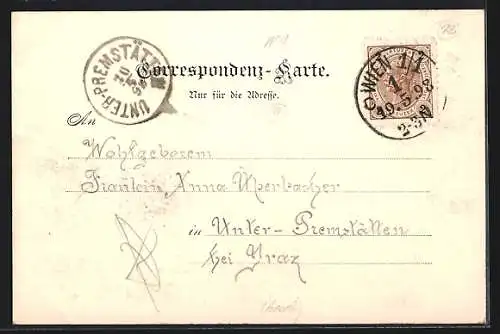 UNTER-PREMSTÄTTEN
20 5
98
WIEN 1/1
1
19.5.98
2-3N
Correspondenz-Karte.
Nur für die Adresse.
An
Wohlgeborem
Fräulein Anna Überbacher
in Unter-Premstätten
bei Graz